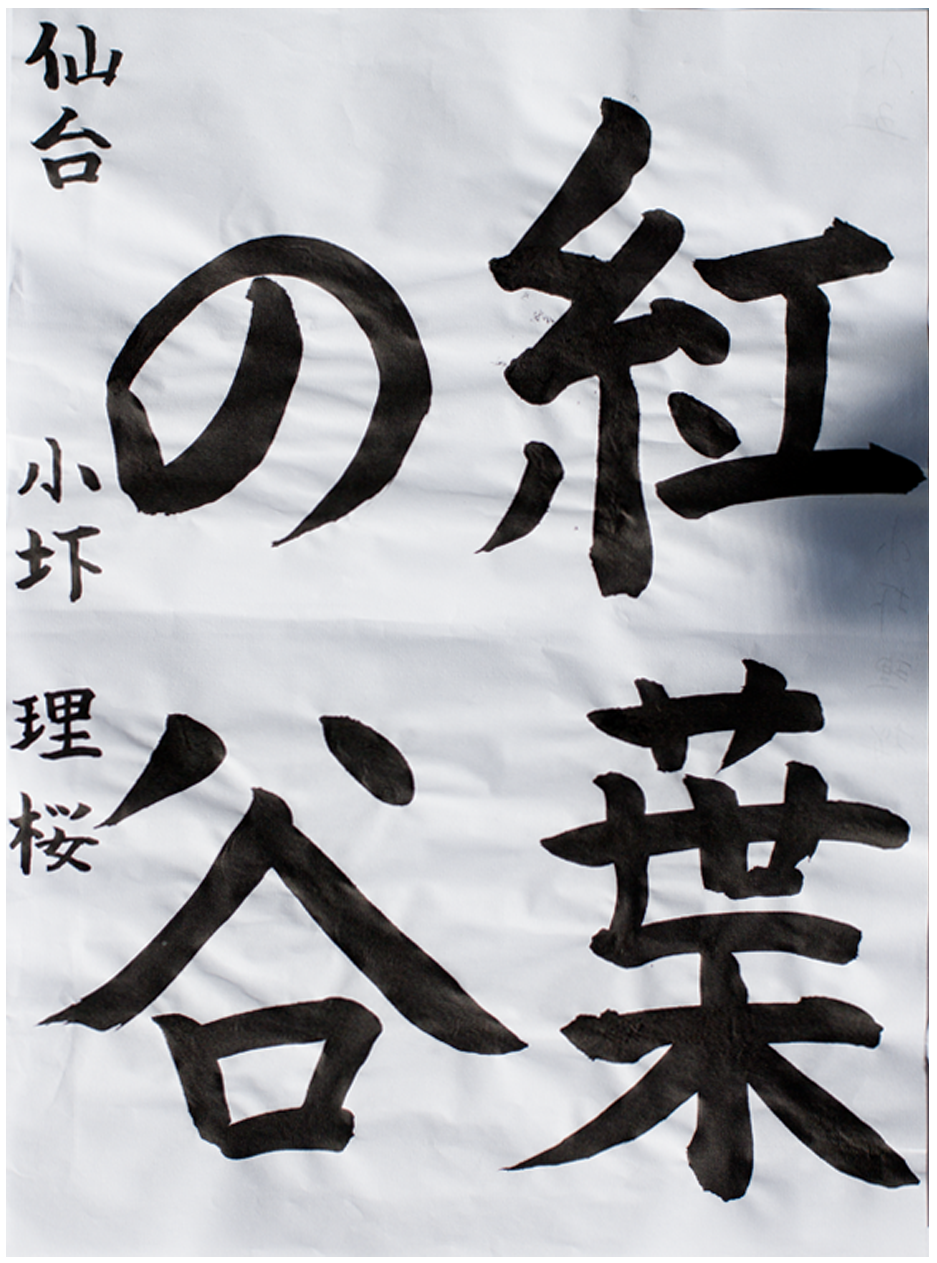 紅葉
の谷
仙台 小圷 理桜